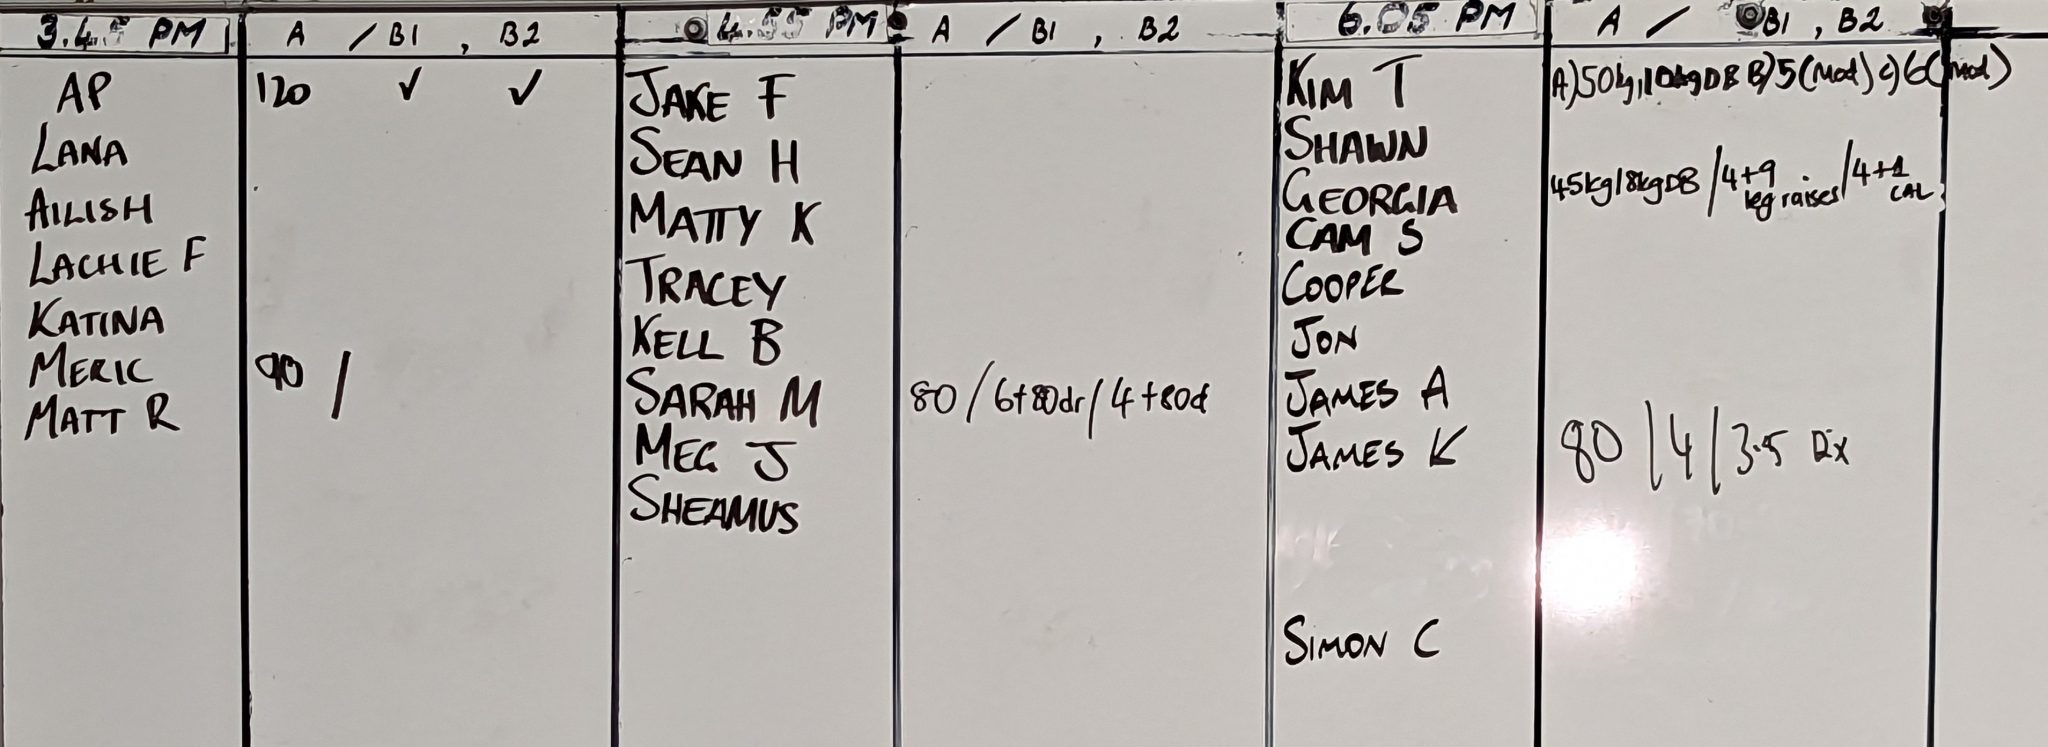 3.45 PM
A / B1 , B2
AP
120 ✓ ✓
LANA
AILISH
LACHIE F
KATINA
MERIC
90 /
MATT R
4.55 PM
A / B1 , B2
JAKE F
SEAN H
MATTY K
TRACEY
KELL B
SARAH M
80 / 6+80dr / 4+80d
MEG J
SHEAMUS
6.05 PM
A / B1 , B2
KIM T
A) 50kg, 10kg DB B) 5 (Mod) c) 6 (Mod)
SHAWN
GEORGIA
45kg/8kgDB / 4+9 leg raises / 4+1 CAL
CAM S
COOPER
JON
JAMES A
JAMES K
80 / 4 / 3.5 Rx
SIMON C